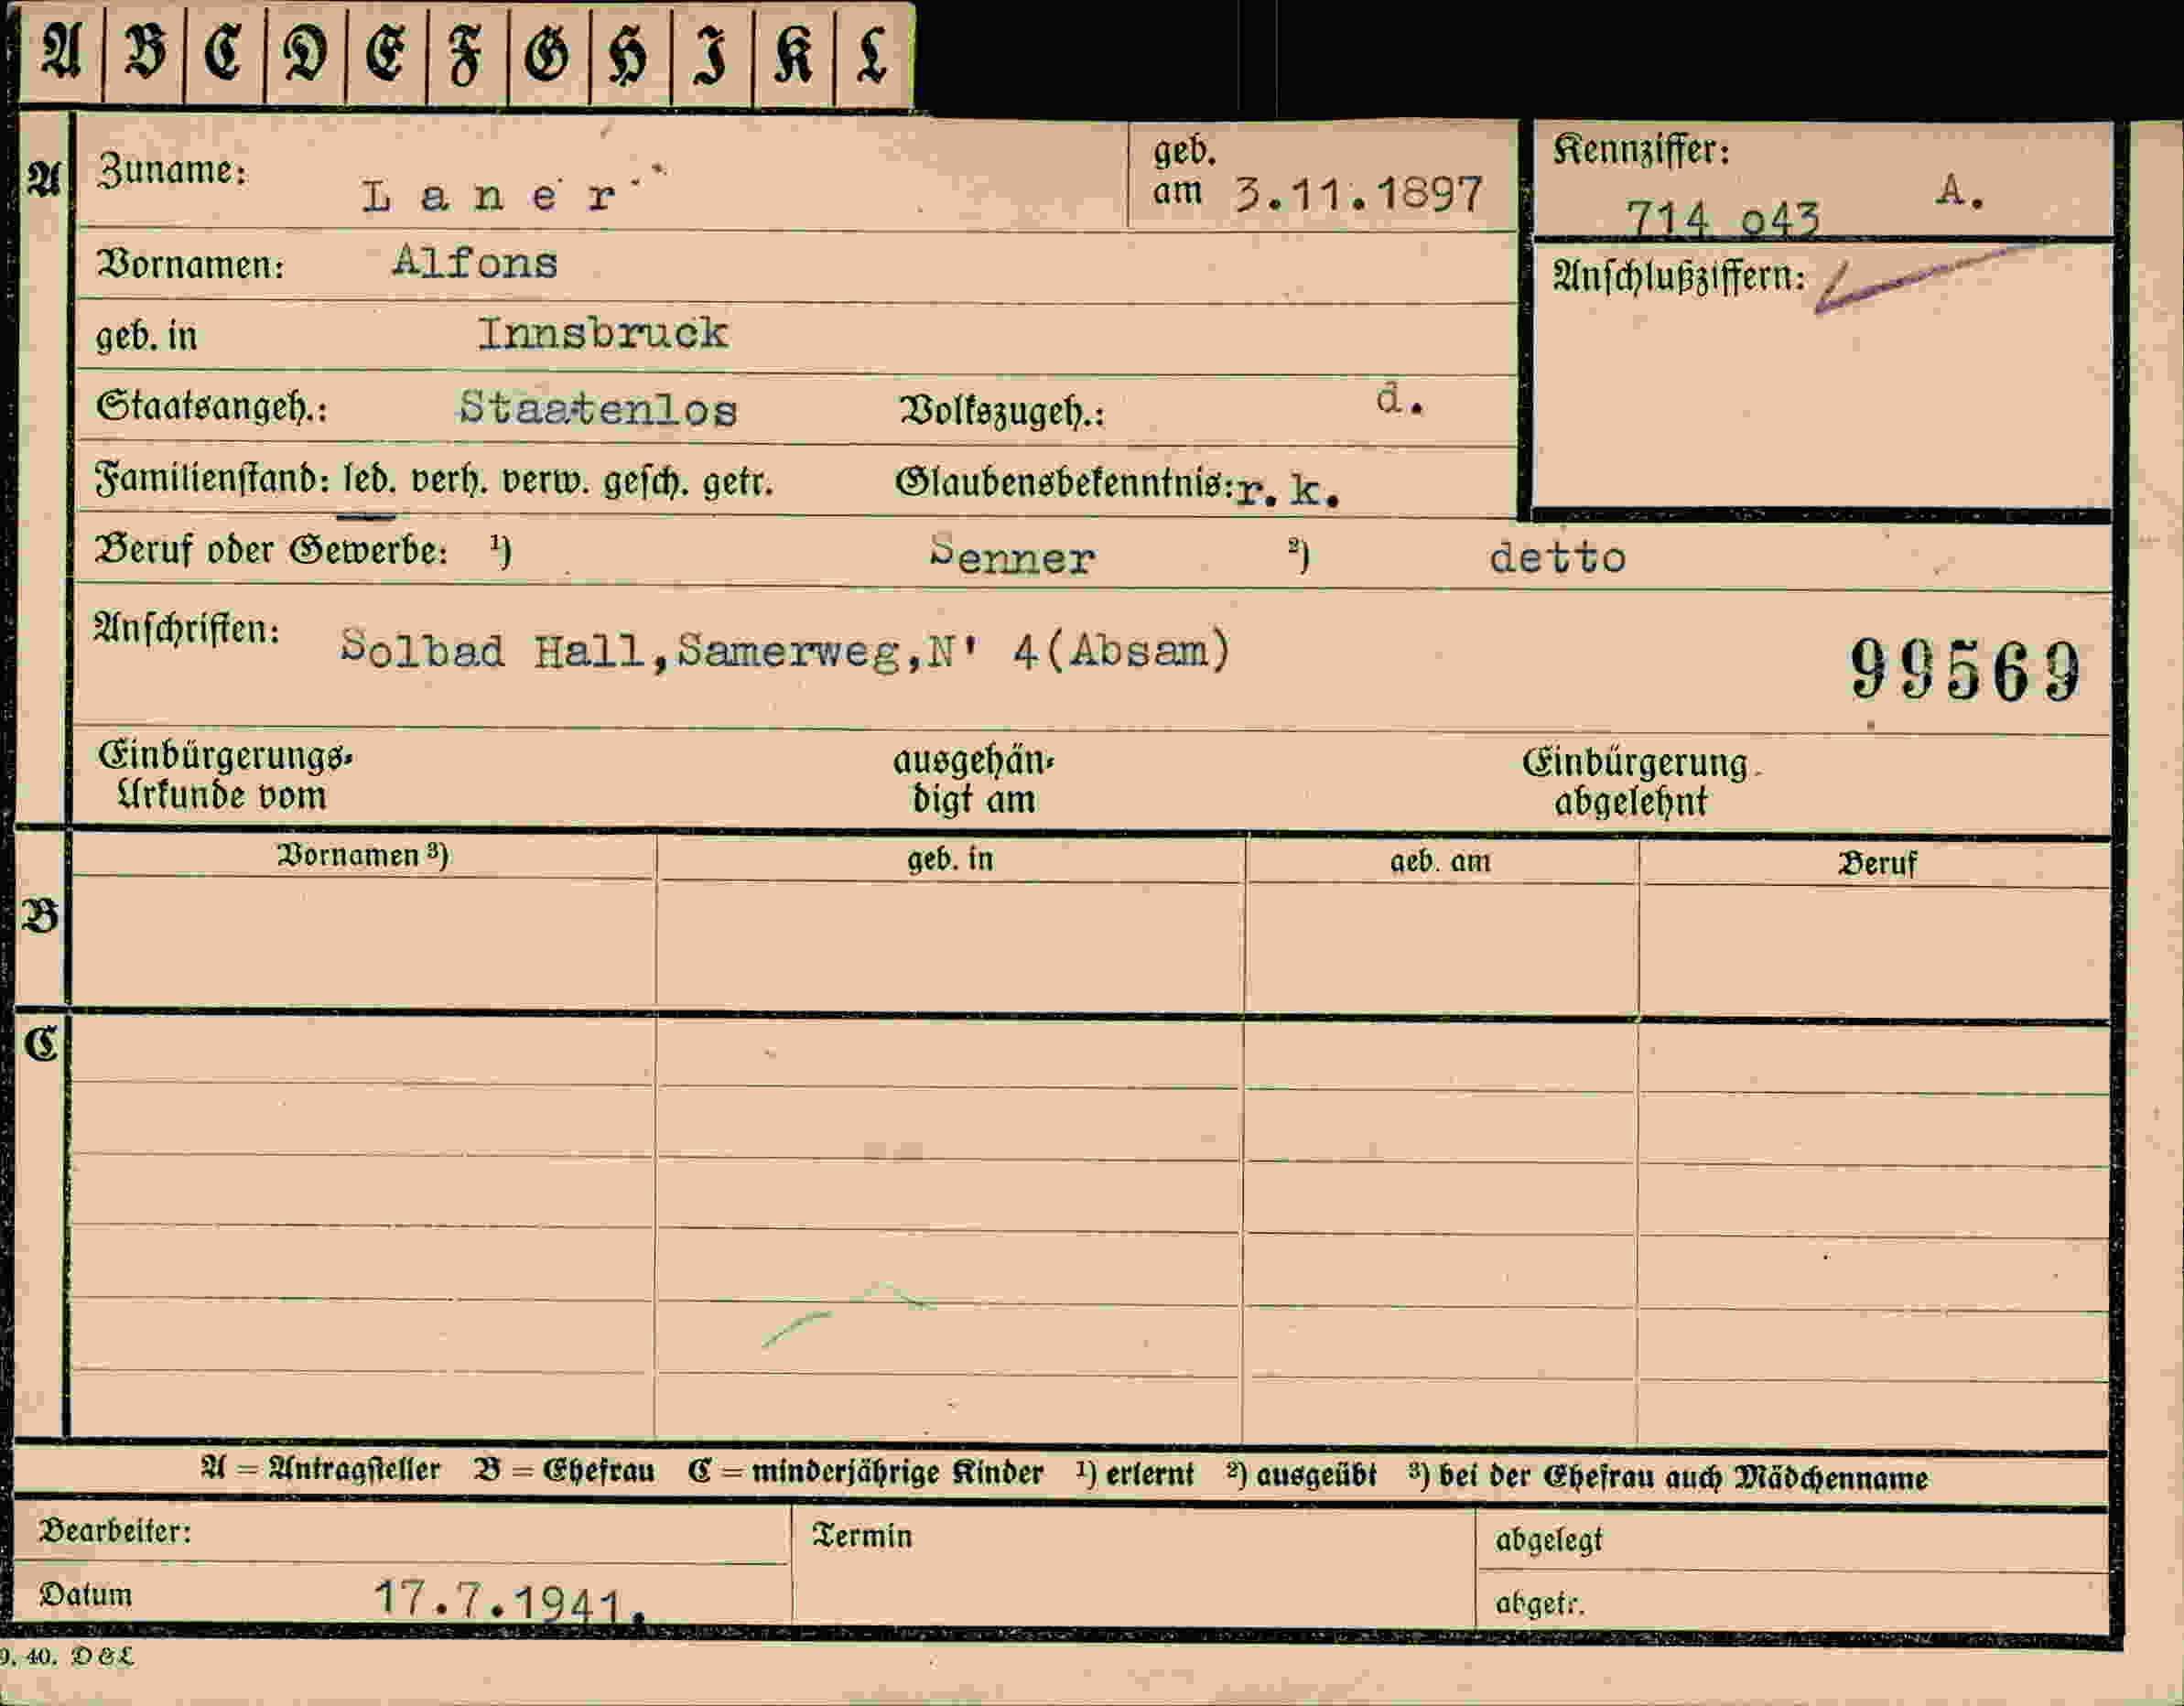 A B C D E F G H I K L
A Zuname: Laner geb. am 3.11.1897 Kennziffer: 714 o43 A.
Vornamen: Alfons Anschlußziffern:
geb. in Innsbruck
Staatsangeh.: Staatenlos Volkszugeh.: d.
Familienstand: led. verh. verw. gesch. getr. Glaubensbekenntnis: r. k.
Beruf oder Gewerbe: ¹) Senner ²) detto
Anschriften: Solbad Hall,Samerweg,N' 4(Absam) 99569
Einbürgerungs-Urkunde vom ausgehändigt am Einbürgerung abgelehnt
Vornamen ³) geb. in geb. am Beruf
B
C
A = Antragsteller B = Ehefrau C = minderjährige Kinder ¹) erlernt ²) ausgeübt ³) bei der Ehefrau auch Mädchenname
Bearbeiter: Termin abgelegt
Datum 17.7.1941. abgetr.
9. 40. D&L